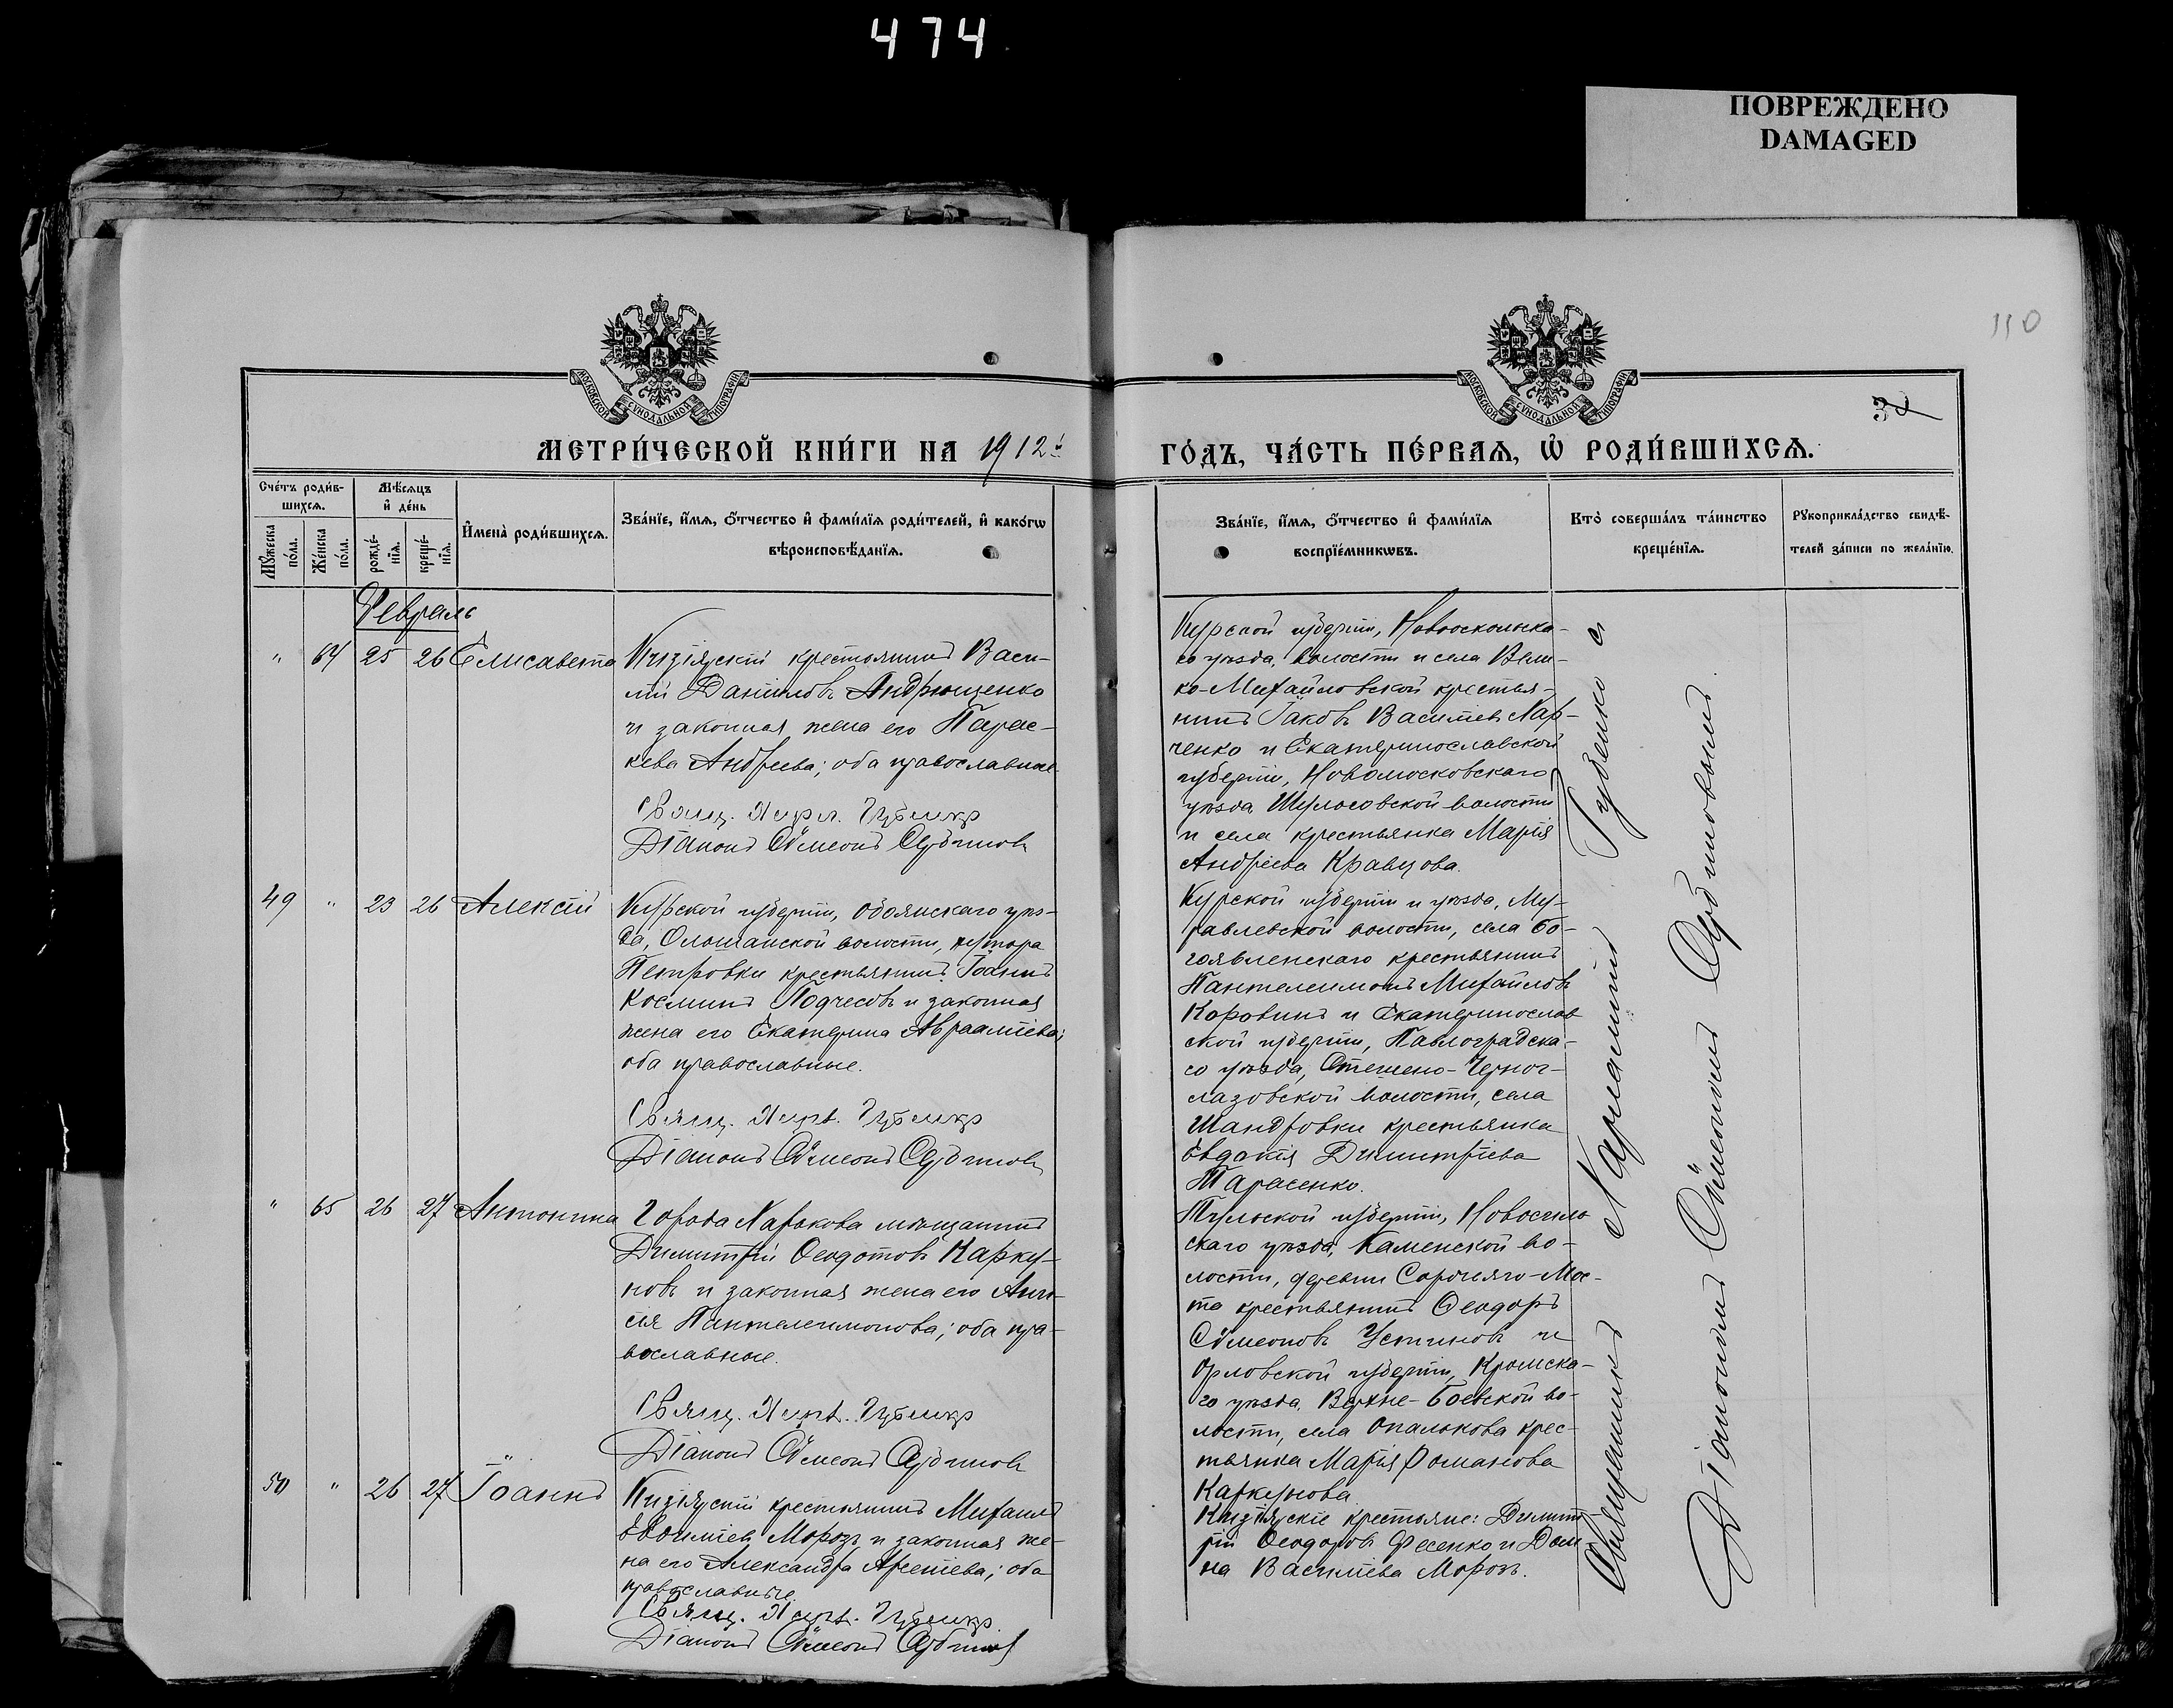 474
ПОВРЕЖДЕНО
DAMAGED
110
30
МОСКОВСКОЙ СѴНОДАЛЬНОЙ ТИПОГРАФІИ
МОСКОВСКОЙ СѴНОДАЛЬНОЙ ТИПОГРАФІИ
МЕТРИ́ЧЕСКОЙ КНИ́ГИ НА 1912й
ГО́ДЪ, ЧА́СТЬ ПЕ́РВАѦ, Ѡ҆ РОДИ́ВШИХСѦ.
Сче́тъ роди́в-
шихсѧ.
Мꙋ́жеска по́ла.
Же́нска по́ла.
Мѣ́сѧцъ
и҆ де́нь
рожде́-нїѧ.
креще́-нїѧ.
И҆мена̀ роди́вшихсѧ.
Зва́нїе, и҆́мѧ, ѻ҆́тчество и҆ фами́лїѧ роди́телей, и҆ како́гѡ
вѣроисповѣ́данїѧ.
Зва́нїе, и҆́мѧ, ѻ҆́тчество и҆ фами́лїѧ
воспрїе́мникѡвъ.
Кто̀ соверша́лъ та́инство
креще́нїѧ.
Рꙋкоприкла́дство свидѣ́-
телей за́писи по жела́нїю.
Февраль
" 64 25 26 Елисавета
Кизіярскій крестьянинъ Васи-
лій Даніиловъ Андрющенко
и законная жена его Парас-
кева Андреева; оба православные
Свящ. Харл. Губенко
Діаконъ Сѵмеонъ
Курской губерніи, Новооскольска-
го уѣзда, волости и села Вели-
ко-Михайловской крестья-
нинъ Іаковъ Василіевъ Мар-
ченко и Екатеринославской
губерніи, Новомосковскаго
уѣзда, волости
и села крестьянка Марія
Андреева Кравцова.
49 " 23 26 Алексій
Курской губерніи, Обоянскаго уѣз-
да, Ольшанской волости, хутора
Петровки крестьянинъ Іоаннъ
Косминъ Подчесовъ и законная
жена его Екатерина Авраамieва;
оба православные.
Свящ. Харл. Губенко
Діаконъ Сѵмеонъ
Курской губерніи и уѣзда, Му-
равлевской волости, села Бо-
гоявленскаго крестьянинъ
Пантелеимонъ Михайловъ
Коровинъ и Екатеринослав
ской губерніи, Павлоградска-
го уѣзда, Черног-
лазовской волости, села
Шандровки крестьянка
Евдокія Димитріева
Тарасенко.
" 65 26 27 Антонина
Города Харькова мѣщанинъ
Димитрій Ѳеодотовъ Карку-
новъ и законная жена его Ани-
сія Пантелеимонова; оба пра-
вославные.
Свящ. Харл. Губенко
Діаконъ Сѵмеонъ
Тульской губерніи, Новосиль
скаго уѣзда, Каменской во-
лости, деревни Сорочьяго-Мос-
та крестьянинъ Ѳеодоръ
Сѵмеоновъ Устиновъ и
Орловской губерніи, Кромска-
го уѣзда, Верхне-Боевской во-
лости, села Опалькова крес-
тьянка Марія Романова
Каркунова.
50 " 26 27 Іоаннъ
Кизіярскій крестьянинъ Михаилъ
Евѳиміевъ Морозъ и законная же-
на его Александра Арсеніева; оба
православные.
Свящ. Харл. Губенко
Діаконъ Сѵмеонъ
Кизіярскіе крестьяне: Димит
рій Ѳеодоровъ Фесенко и Дом
на Василіева Морозъ.
Священникъ Харлампій Губенко съ
Діакономъ Сѵмеономъ